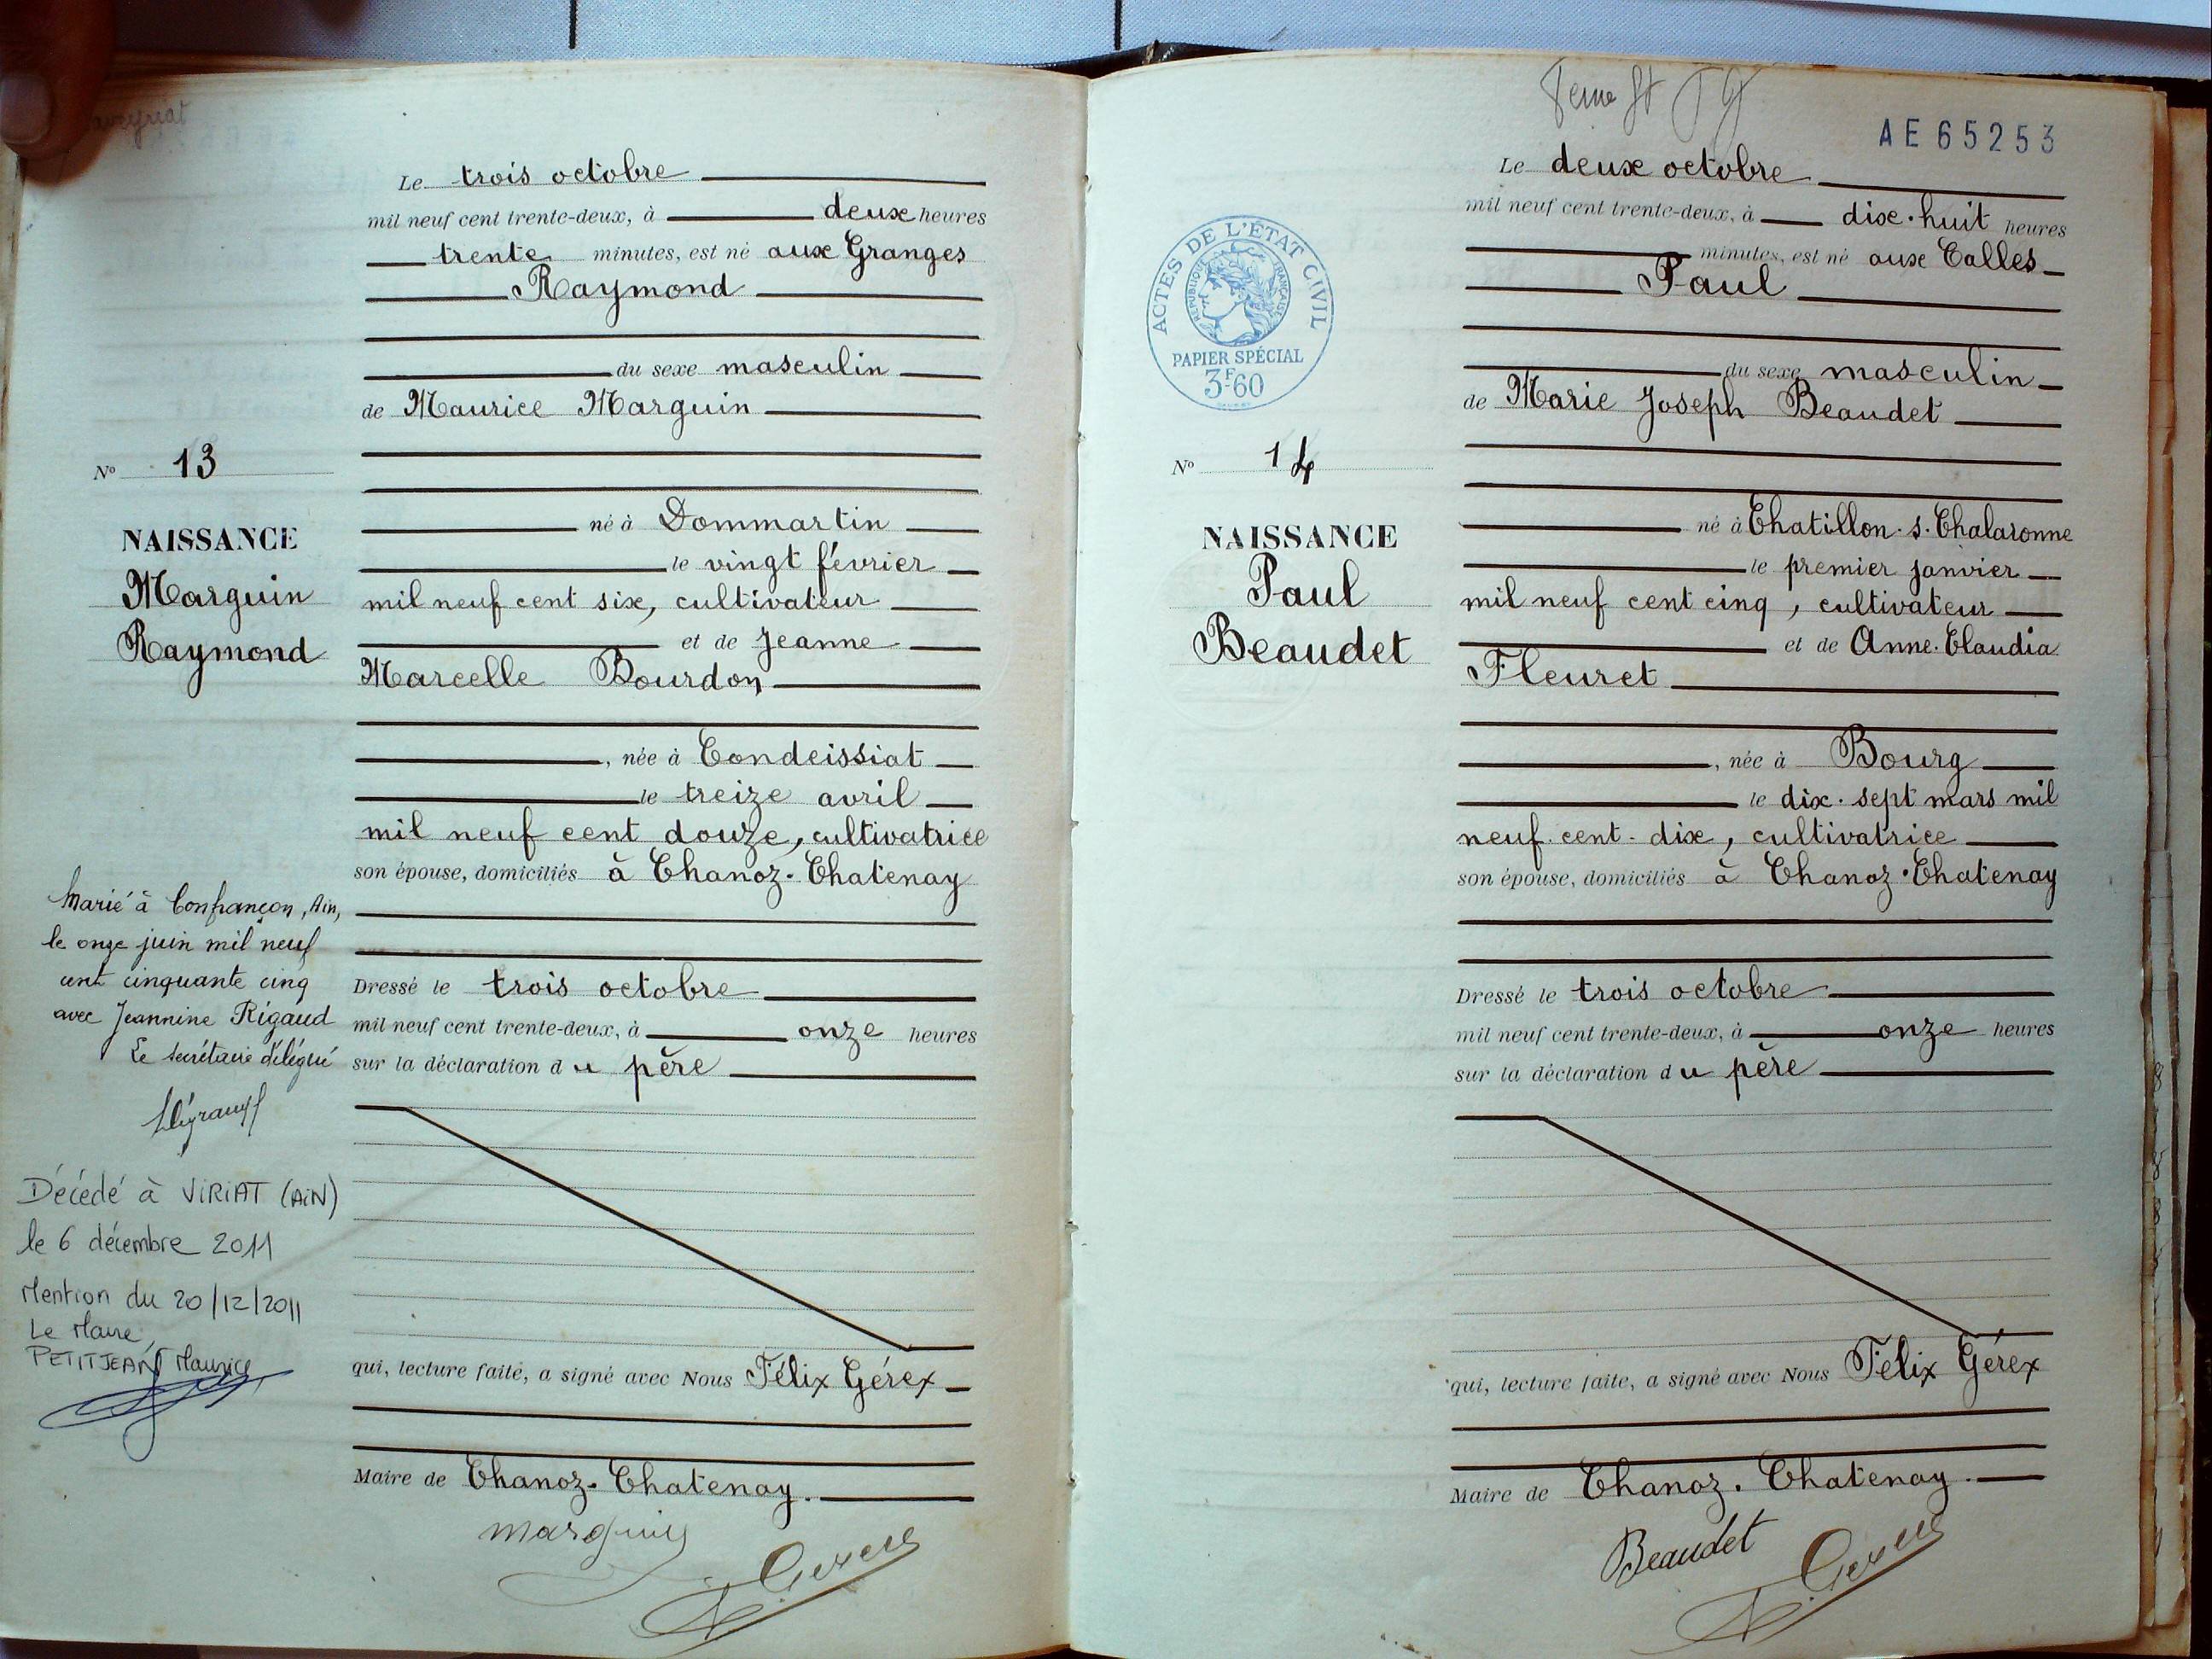 Le trois octobre
mil neuf cent trente-deux, à deux heures
trente minutes, est né aux Granges
Raymond
du sexe masculin
de Maurice Marguin
né à Dommartin
le vingt février
mil neuf cent six, cultivateur
et de Jeanne
Marcelle Bourdon
, née à Condeissiat
le treize avril
mil neuf cent douze, cultivatrice
son épouse, domiciliés à Chanoz-Chatenay
Dressé le trois octobre
mil neuf cent trente-deux, à onze heures
sur la déclaration du père
qui, lecture faite, a signé avec Nous Félix Gérex
Maire de Chanoz-Chatenay.
Marguin
N° 13
NAISSANCE
Marguin
Raymond
Marié à Confrançon, Ain,
le onze juin mil neuf
cent cinquante cinq
avec Jeannine Rigaud
Le secrétaire délégué
Décédé à VIRIAT (AIN)
le 6 décembre 2011
Mention du 20/12/2011
Le Maire,
PETITJEAN Maurice
AE65253
Le deux octobre
mil neuf cent trente-deux, à dix-huit heures
minutes, est né aux Calles
Paul
du sexe masculin
de Marie Joseph Beaudet
né à Chatillon-s-Chalaronne
le premier janvier
mil neuf cent cinq, cultivateur
et de Anne-Claudia
Fleuret
, née à Bourg
le dix-sept mars mil
neuf-cent-dix, cultivatrice
son épouse, domiciliés à Chanoz-Chatenay
Dressé le trois octobre
mil neuf cent trente-deux, à onze heures
sur la déclaration du père
qui, lecture faite, a signé avec Nous Félix Gérex
Maire de Chanoz-Chatenay.
Beaudet
ACTES DE L'ETAT CIVIL
RÉPUBLIQUE FRANÇAISE
PAPIER SPÉCIAL
3F60
N° 14
NAISSANCE
Paul
Beaudet